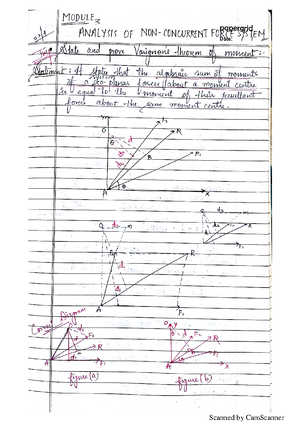 MODULE:-
paperorid
Date:
ANALYSIS OF NON-CONCURRENT FORCE SYSTEM
State and prove Varignons theorem of moment:-
Statement:- It states that the algebraic sum of moments
of a co-planar forces about a moment centre
is equal to the moment of their resultant
force about the same moment centre.
m
O
F2
R
F1
B
d
θ
A
x
d2
m
R
A
F1
Correct Diagram
y
O
F2
R
F1
A
x
figure (a)
figure (b)
Scanned by CamScanner